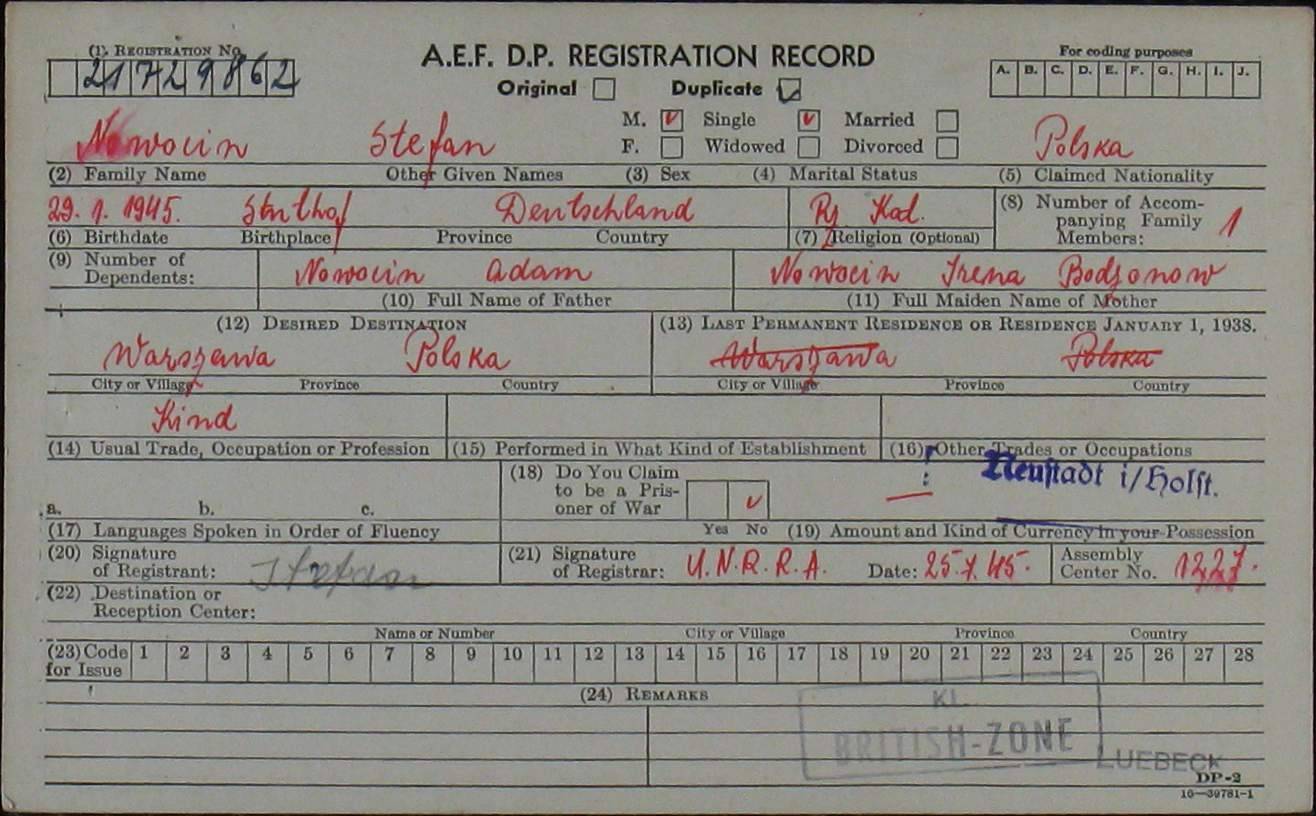 (1) REGISTRATION No.
21729862
A.E.F. D.P. REGISTRATION RECORD
Original Duplicate
For coding purposes
A. B. C. D. E. F. G. H. I. J.
Nowocin Stefan
M. Single Married
F. Widowed Divorced
Polska
(2) Family Name Other Given Names (3) Sex (4) Marital Status (5) Claimed Nationality
29. 1. 1945. Deutschland
Kat.
(8) Number of Accompanying Family Members: 1
(6) Birthdate Birthplace Province Country (7) Religion (Optional)
(9) Number of Dependents:
Nowocin Adam
Nowocin Irena
(10) Full Name of Father (11) Full Maiden Name of Mother
(12) DESIRED DESTINATION (13) LAST PERMANENT RESIDENCE OR RESIDENCE JANUARY 1, 1938.
Warszawa Polska Warszawa Polska
City or Village Province Country City or Village Province Country
Kind
(14) Usual Trade, Occupation or Profession (15) Performed in What Kind of Establishment (16) Other Trades or Occupations
Neustadt i/Holst.
(18) Do You Claim to be a Prisoner of War
a. b. c.
Yes No
(17) Languages Spoken in Order of Fluency (19) Amount and Kind of Currency in your Possession
(20) Signature of Registrant: Stefan
(21) Signature of Registrar: U.N.R.R.A. Date: 25.7.45.
Assembly Center No. 1227.
(22) Destination or Reception Center:
Name or Number City or Village Province Country
(23) Code for Issue 1 2 3 4 5 6 7 8 9 10 11 12 13 14 15 16 17 18 19 20 21 22 23 24 25 26 27 28
(24) REMARKS
KL.
BRITISH-ZONE
LUEBECK
DP-2
16—39781-1